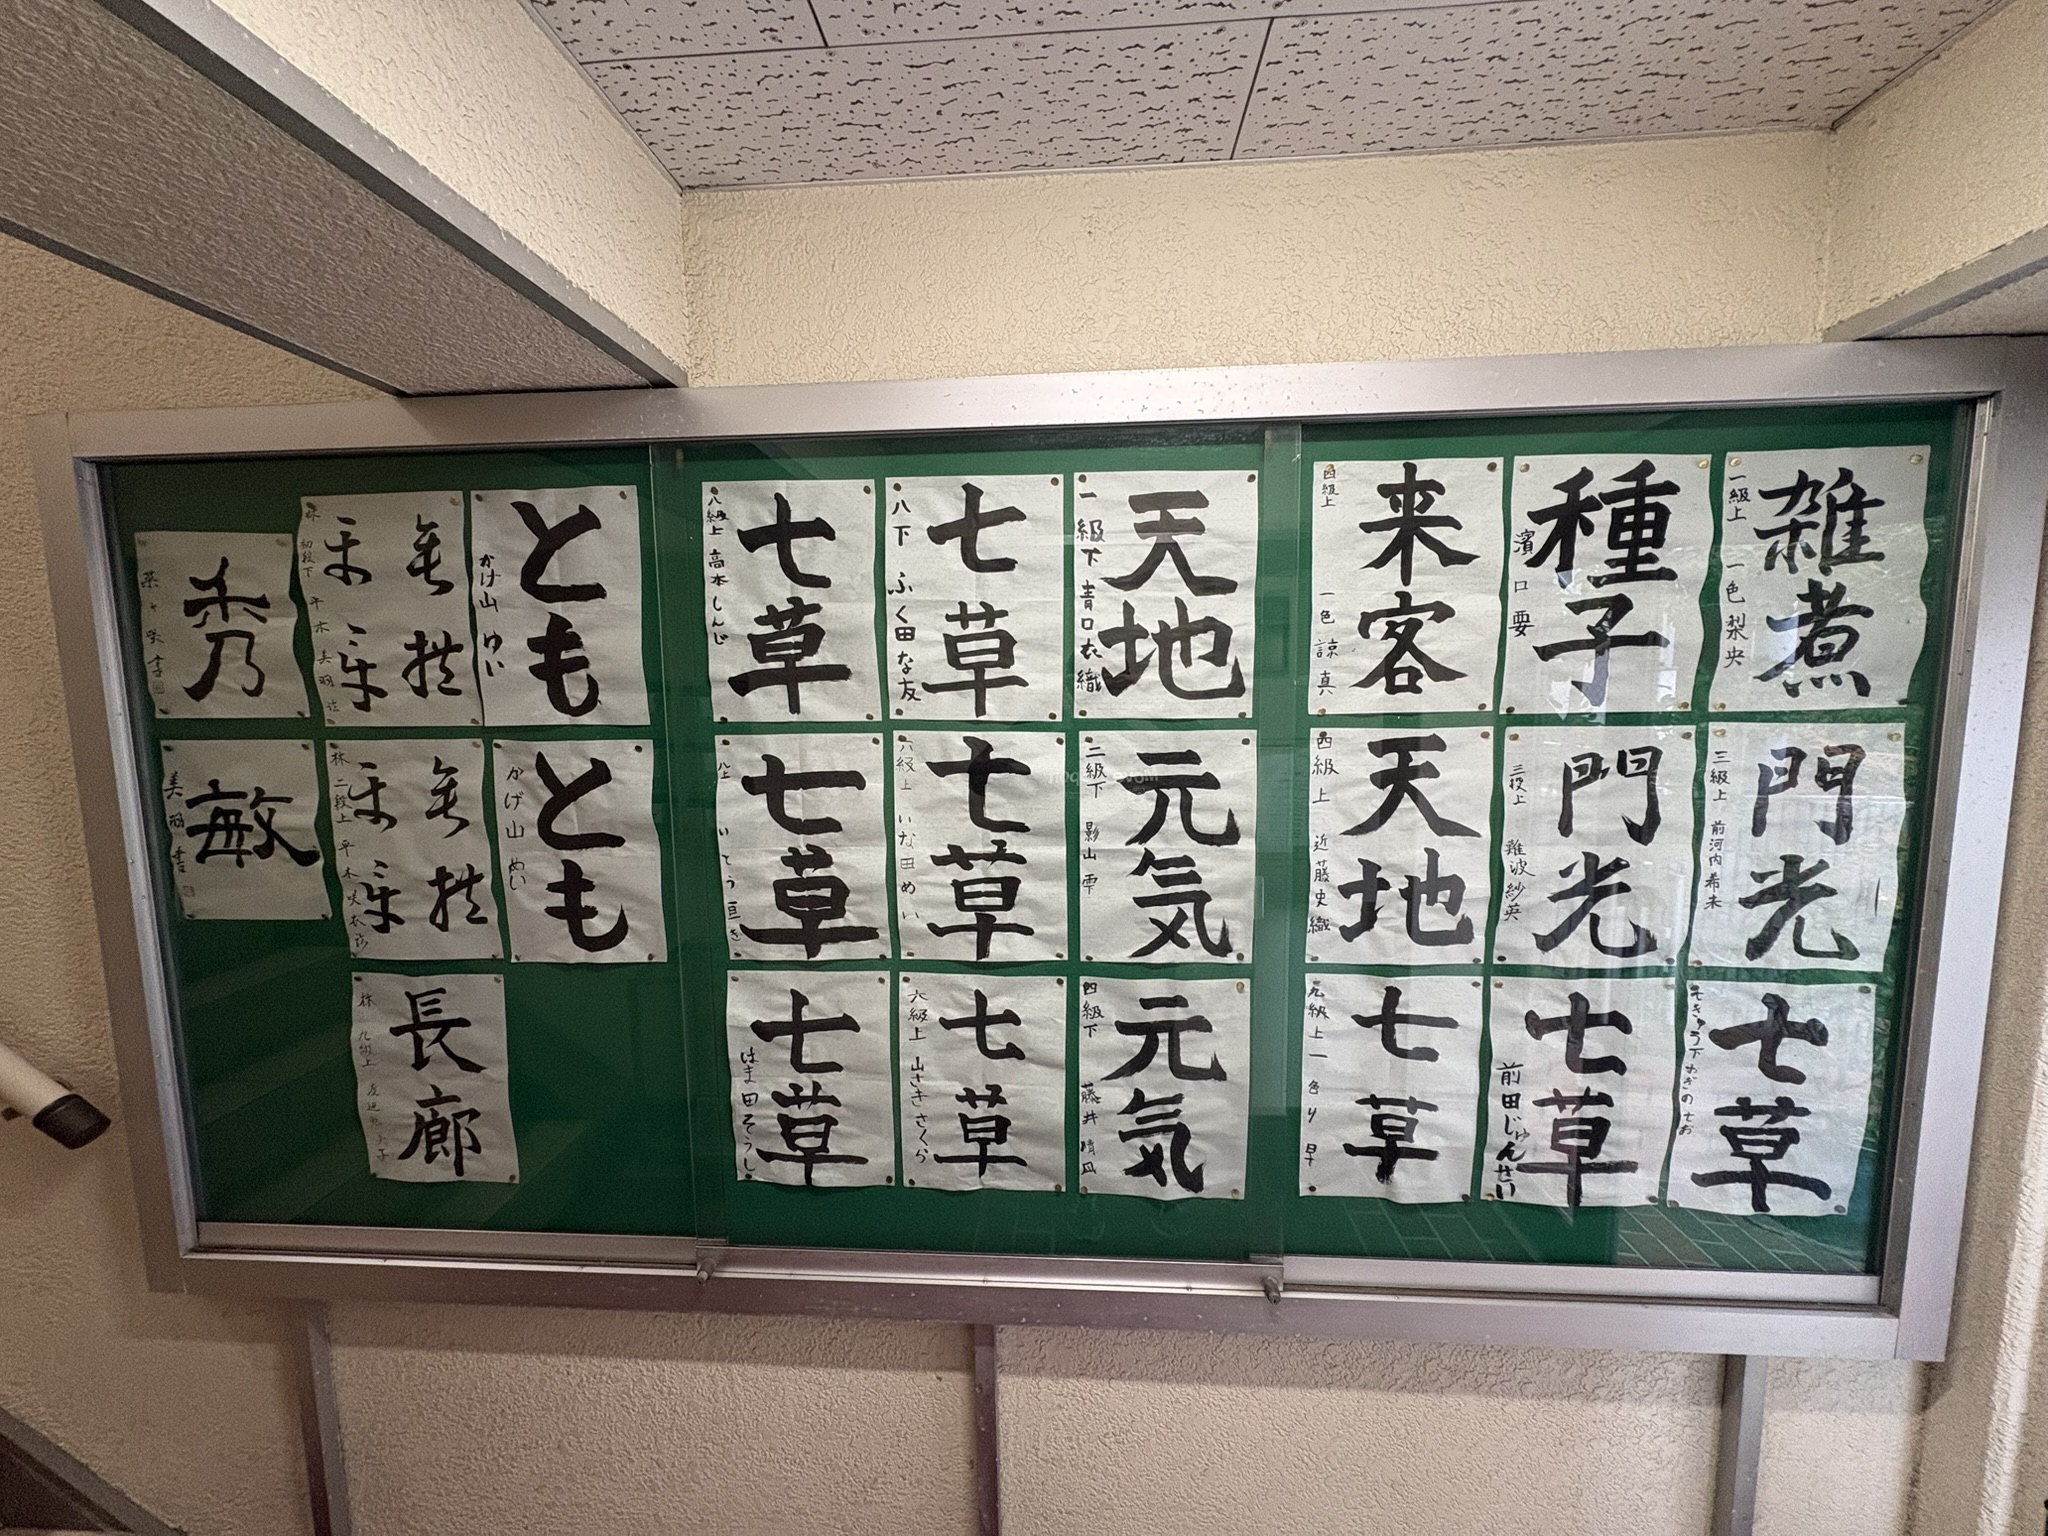 雑煮
一級上 一色梨央
種子
濱口要
来客
四級上 一色諒真
門光
三級上 前河内希未
門光
三段上 難波紗英
天地
四級上 近藤史織
七草
七草
前田じゅんせい
七草
天地
一級下 青口衣織
七草
八下 ふく田な友
七草
八級上 高本しんじ
元気
二級下 影山雫
七草
六級上 いな田めい
七草
八上
元気
四級下 藤井晴凪
七草
六級上 山さきさくら
七草
はま田そうし
とも
かげ山ゆい
初段下
秀
とも
かげ山めい
林 二段上
敏
長廊
林 九級上